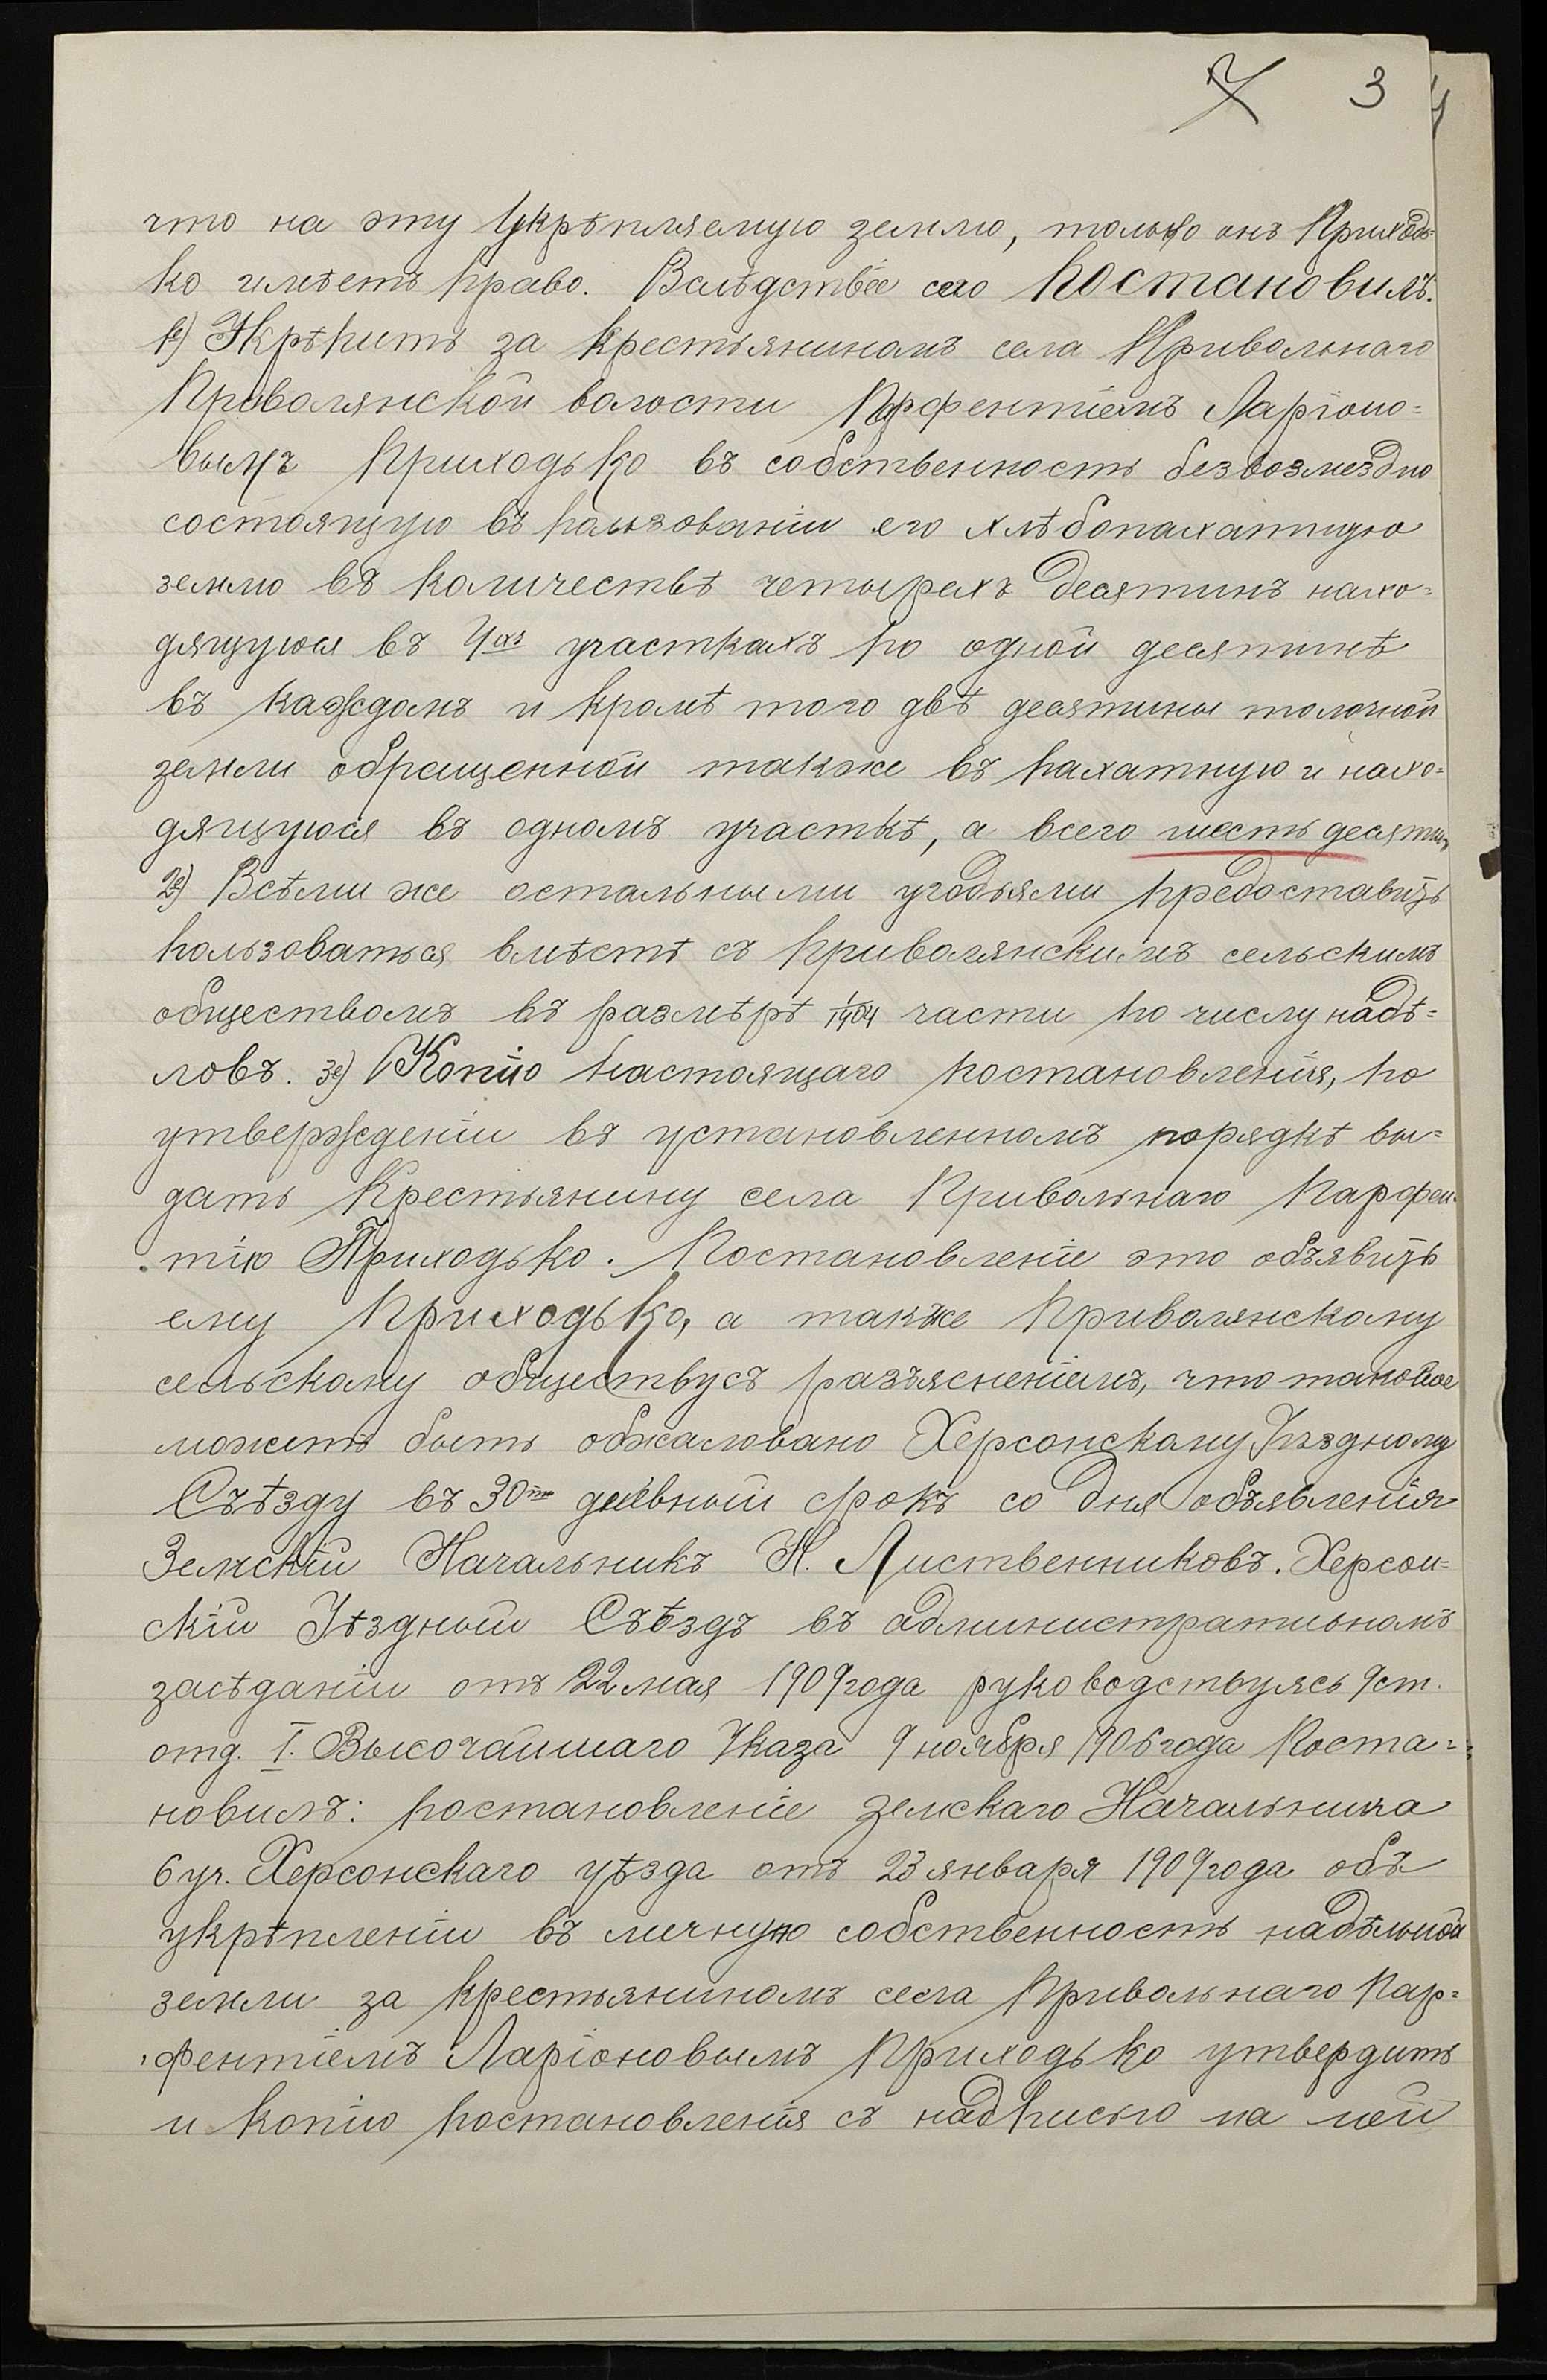 3
что на эту Укрѣпляемую землю, только онъ Приходь-
ко имѣетъ право. Вслѣдствіе сего Постановилъ:
1е) Укрѣпить за крестьяниномъ села Привольнаго
Привольянской волости Парфентіемъ Ларіоно=
вымъ Приходько въ собственность безвозмездно
состоящую въ пользованіи его хлѣбопахатную
землю въ количествѣ четырехъ десятинъ нахо=
дящуюся въ 4хъ участкахъ по одной десятинѣ
въ каждомъ и кромѣ того двѣ десятины толочной
земли обращенной также въ пахатную и нахо=
дящуюся въ одномъ участкѣ, а всего шесть десятин
2е) Всѣми же остальными угодьями предоставить
пользоваться вмѣстѣ съ Привольянскимъ сельскимъ
обществомъ въ размѣрѣ части по числу надѣ=
ловъ. 3е) Копію настоящаго постановленія, по
утвержденіи въ установленномъ порядкѣ вы=
дать Крестьянину села Привольнаго Парфен-
тію Приходько. Постановленіе это объявить
ему Приходько, а также Привольянскому
сельскому обществу съ разъясненіемъ, что таковое
можетъ быть обжаловано Херсонскому Уѣздному
Съѣзду въ 30ти дневный срокъ со дня объявленія
Земскій Начальникъ Н. Лиственниковъ. Херсон=
скій Уѣздный Съѣздъ въ административномъ
засѣданіи отъ 22 мая 1909 года руководствуясь 9 ст.
отд. I. Высочайшаго Указа 9 ноября 1906 года Поста=
новилъ: постановленіе земскаго Начальника
6 уч. Херсонскаго уѣзда отъ 23 января 1909 года объ
укрѣпленіи въ личную собственность надѣльной
земли за крестьяниномъ села Привольнаго Пар=
фентіемъ Ларіоновымъ Приходько утвердить
и копію постановленія съ надписью на ней